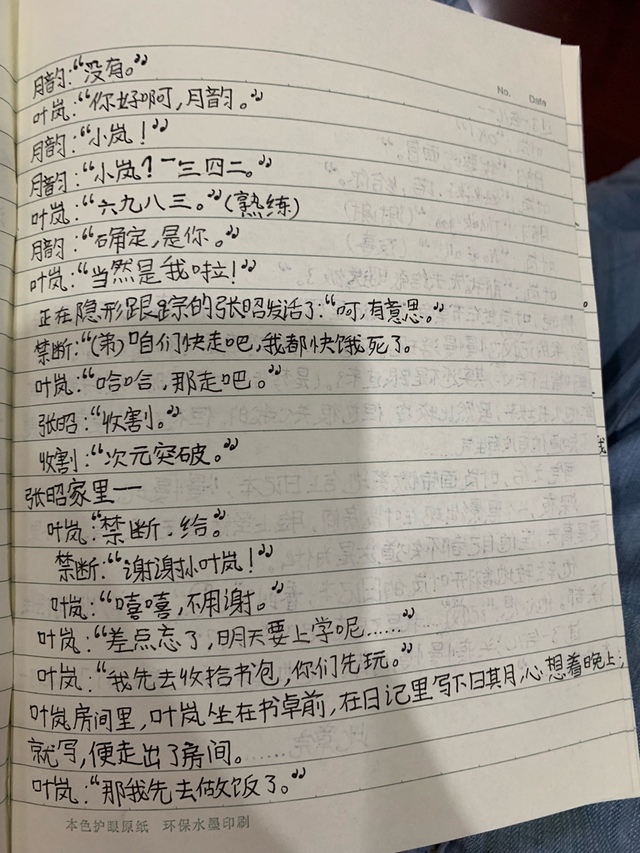 No. Date
月韵:“没有。”
叶岚:“你好啊,月韵。”
月韵:“小岚!”
月韵:“小岚?一三四二。”
叶岚:“六九八三。”(熟练)
月韵:“确定,是你。”
叶岚:“当然是我啦!”
正在隐形跟踪的张昭发话了:“呵,有意思。”
禁断:“(弟)咱们快走吧,我都快饿死了。
叶岚:“哈哈,那走吧。”
张昭:“收割。”
收割:“次元突破。”
张昭家里一
叶岚:“禁断.给。”
禁断:“谢谢小叶岚!”
叶岚:“嘻嘻,不用谢。”
叶岚:“差点忘了,明天要上学呢……”
叶岚:“我先去收拾书包,你们先玩。”
叶岚房间里,叶岚坐在书桌前,在日记里写下日期,心想着晚上
就写,便走出了房间。
叶岚:“那我先去做饭了。”
本色护眼原纸 环保水墨印刷